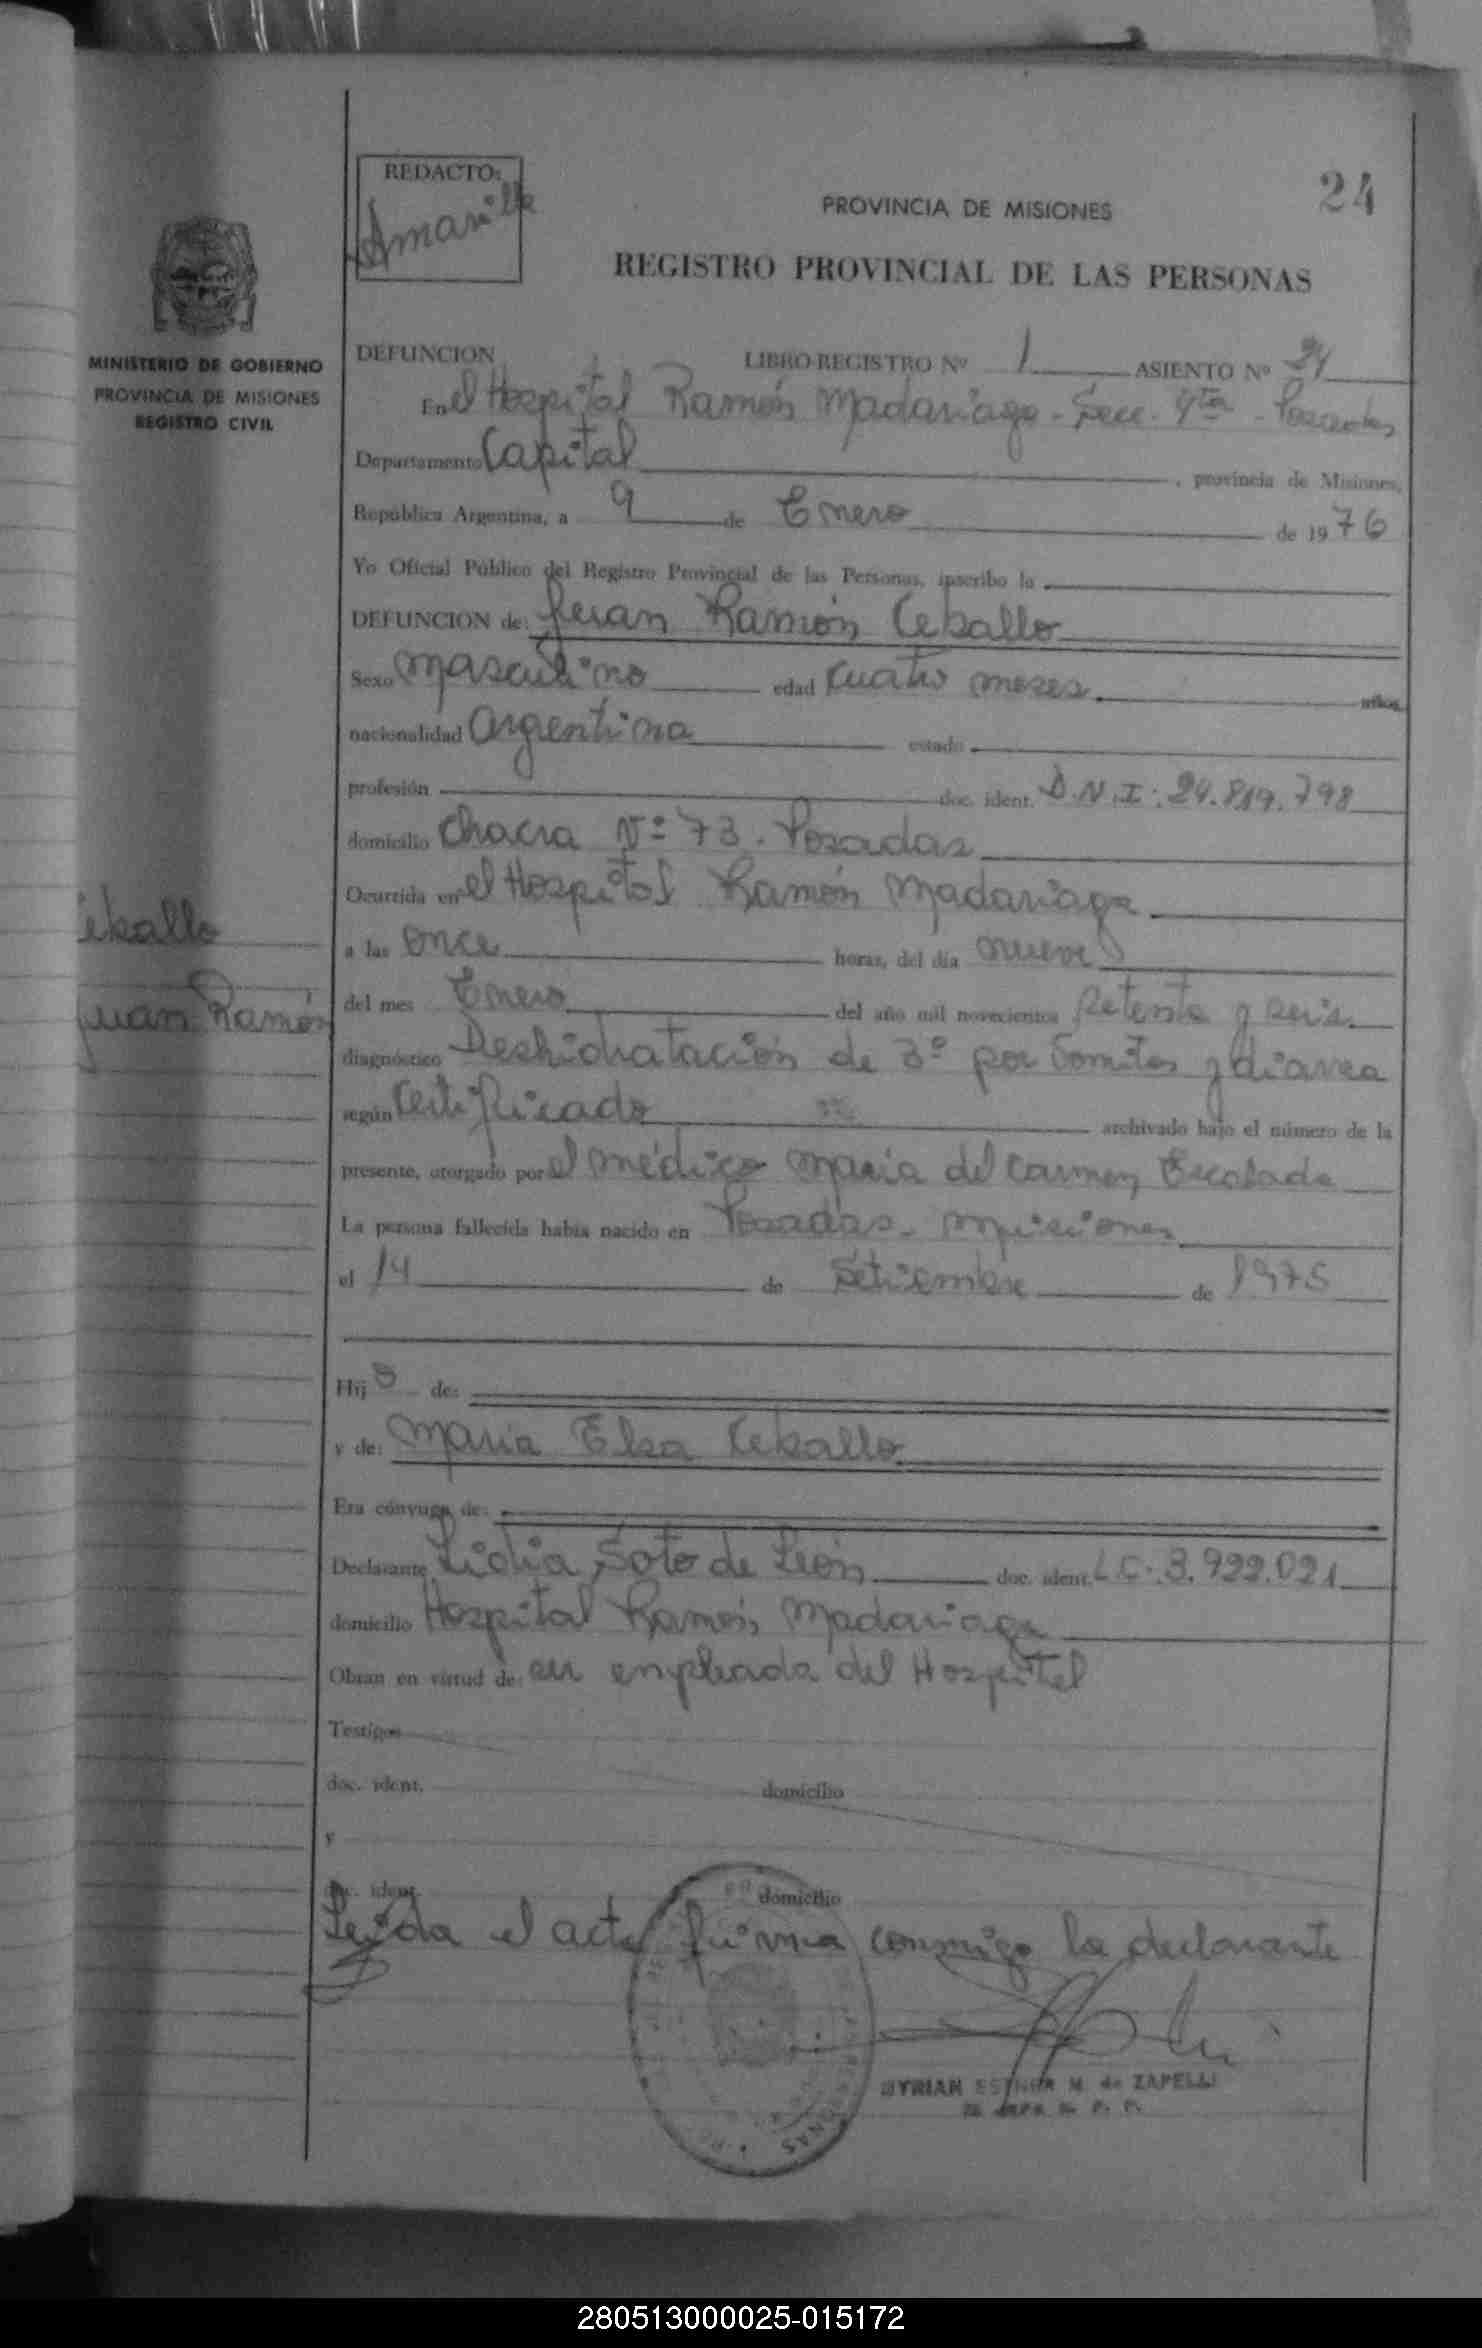 REDACTO:
Amarilla
24
PROVINCIA DE MISIONES
REGISTRO PROVINCIAL DE LAS PERSONAS
MINISTERIO DE GOBIERNO
PROVINCIA DE MISIONES
REGISTRO CIVIL
DEFUNCION LIBRO REGISTRO Nº 1 ASIENTO Nº 24
En el Hospital Ramón Madariaga - Secc. 4ta - Posadas
Departamento Capital , provincia de Misiones,
República Argentina, a 9 de Enero de 1976
Yo Oficial Público del Registro Provincial de las Personas, inscribo la
DEFUNCION de: Juan Ramón Ceballo
Sexo Masculino edad cuatro meses años
nacionalidad Argentina estado
profesión doc. ident. D.N.I: 24.819.798
domicilio Chacra Nº 73. Posadas
Ocurrida en el Hospital Ramón Madariaga
Ceballo
a las once horas, del día nueve
Juan Ramón
del mes Enero del año mil novecientos setenta y seis
diagnóstico Deshidratación de 3º por Vomitos y diarrea
según Certificado archivado bajo el número de la
presente, otorgado por el médico Maria del Carmen Escalada
La persona fallecida había nacido en Posadas - Misiones
el 14 de Setiembre de 1975
Hijo de:
y de: Maria Elsa Ceballo
Era cónyuge de:
Declarante Lidia Soto de León doc. ident. L.C. 3.922.021
domicilio Hospital Ramón Madariaga
Obran en virtud de: ser empleada del Hospital
Testigos
doc. ident. domicilio
y
doc. ident. domicilio
Leída el acta firma conmigo la declarante
MYRIAN ESTHER M. de ZAPELLI
280513000025-015172